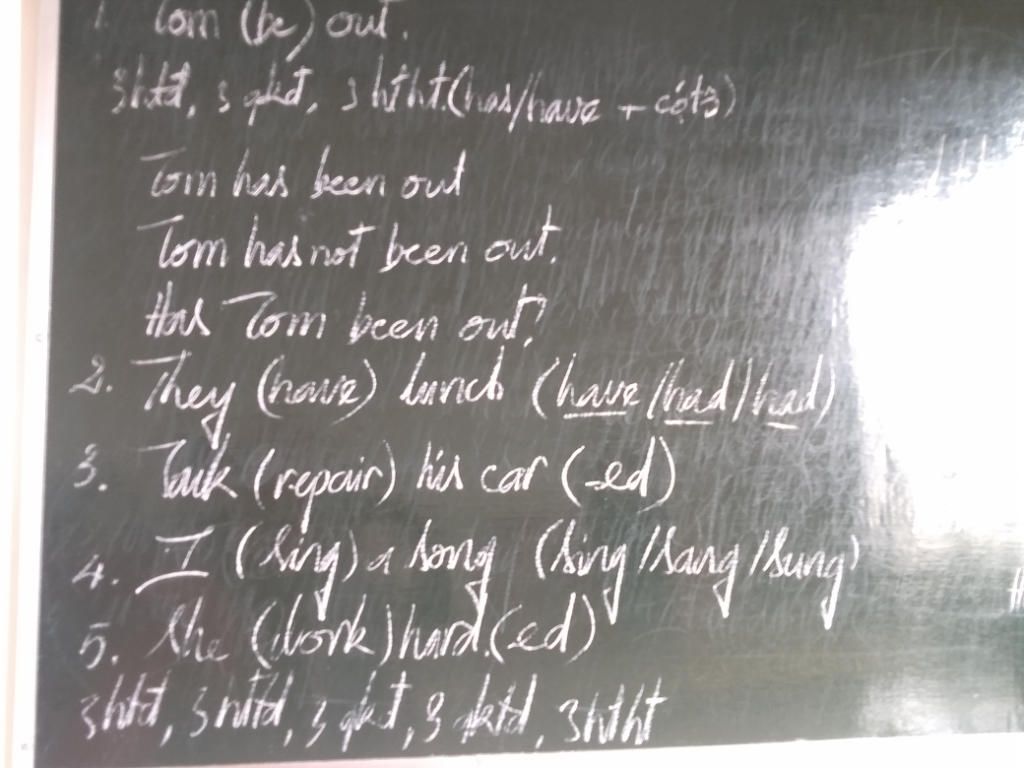 1. Tom (be) out.
3 htđ, 3 qkđ, 3 htht (has/have + cột3)
Tom has been out
Tom has not been out.
Has Tom been out?
2. They (have) lunch (have/had/had)
3. Jack (repair) his car (-ed)
4. I (sing) a song (sing/sang/sung)
5. She (work) hard. (ed)
3 htđ, 3 httd, 3 qkđ, 3 qktd, 3 htht